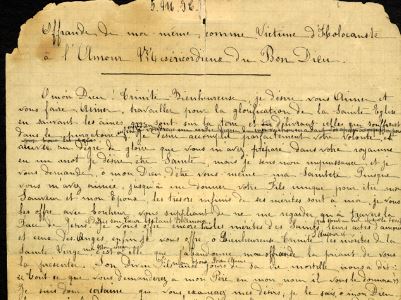 Offrande de moi même comme Victime d'Holocauste
à l'Amour Miséricordieux du Bon Dieu.
O mon Dieu! Trinité Bienheureuse, je désire vous Aimer et
vous faire Aimer, travailler pour la glorification de la Sainte Eglise
en sauvant les âmes qui sont sur la terre et en délivrant celles qui souffrent
dans le purgatoire. Je désire accomplir parfaitement votre volonté et
arriver au degré de gloire que vous m'avez préparé dans votre royaume
en un mot je désire être Sainte mais je sens mon impuissance et je
vous demande, ô mon Dieu d'être vous-même ma Sainteté. Puisque
vous m'avez aimée jusqu'à me donner votre Fils unique pour être mon
Sauveur et mon Epoux, les trésors infinis de ses mérites sont à moi, je vous
les offre avec bonheur, vous suppliant de ne me regarder qu'à travers la
Face de Jésus
Je vous offre encore tous les mérites des Saints, leurs actes d'amour
et ceux des Anges enfin je vous offre ô Bienheureuse Trinité les mérites de la
Sainte Vierge, c'est à elle que j'abandonne mon offrande la priant de vous
la présenter. Son Divin Fils nous dit:
"Tout ce que vous demanderez à mon Père en mon nom il vous le donnera!"
Je suis donc certaine que vous exaucerez mes désirs, je le sais, ô mon Dieu